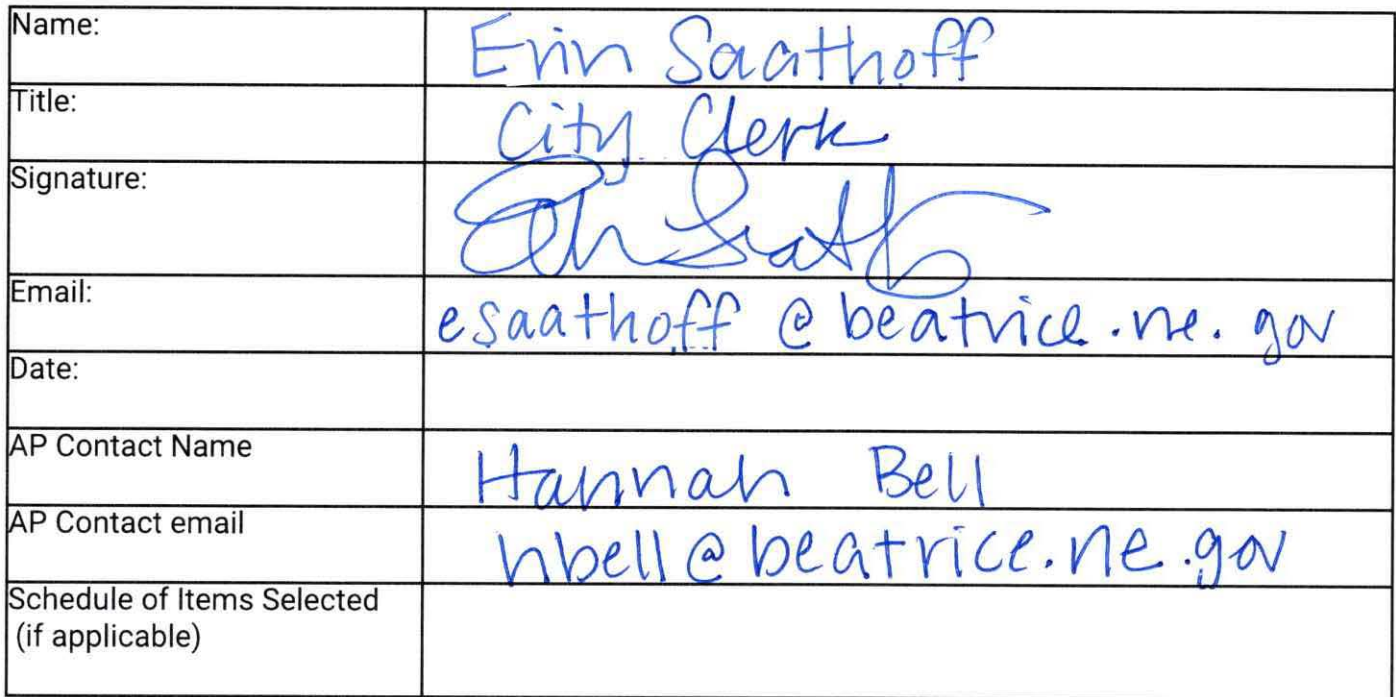 Name: Erin Saathoff
Title: City Clerk
Signature:
Email: esaathoff@beatrice.ne.gov
Date:
AP Contact Name Hannah Bell
AP Contact email hbell@beatrice.ne.gov
Schedule of Items Selected
(if applicable)